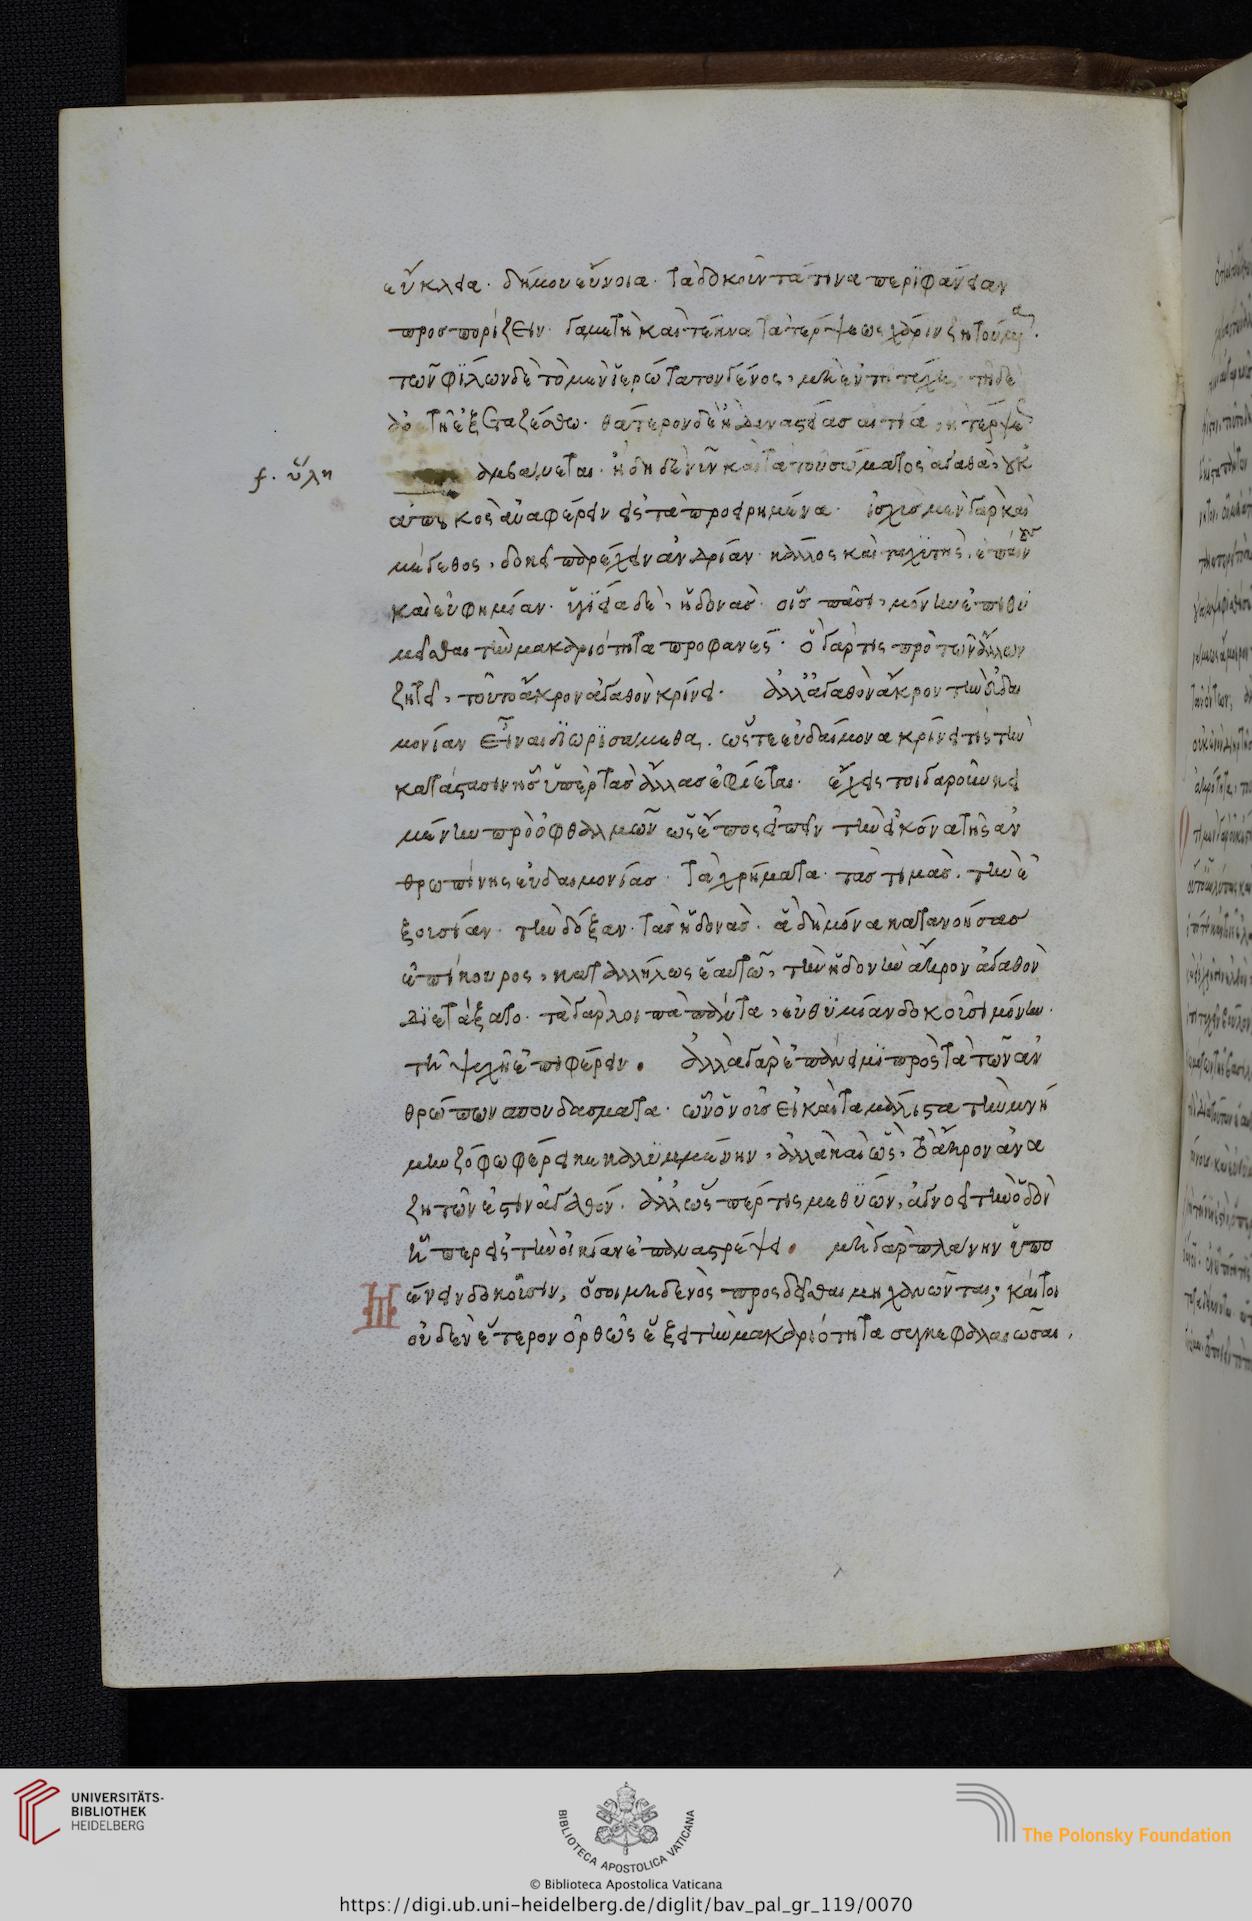 εὔκλεια· δήμου εὔνοια· τὰ δοκοῦντά τινα περιφάνειαν
προσπορίζειν· γαμετὴ καὶ τέκνα τὰ τέρψεως χάριν ζητούμενα·
τῶν φίλων δὲ τὸ μὲν ἱερώτατον γένος, μὴ ἐν τῇ τύχῃ τῇ δὲ
ἀρετῇ ἐξεταζέσθω· θάτερον δὲ ἢ δυναστείας αἰτία ἢ τέρψε
f. ὕλη
λαμβάνεται· ἤδη δὲ νῦν καὶ τὰ τοῦ σώματος ἀγαθὰ, οὐκ
ἀπεικὸς ἀναφέρειν εἰς τὰ προειρημένα· ἰσχὺς μὲν γὰρ καὶ
μέγεθος, δοκεῖ παρέχειν ἀνδρίαν· κάλλος καὶ ταχύτης, ἔπαινον
καὶ εὐφημίαν· ὑγίεια δὲ, ἡδονὰς· οἷς πᾶσι, μόνην ἐπιθυ
μεῖσθαι τὴν μακαριότητα προφανές· ὃ γάρ τις πρὸ τῶν ἄλλων
ζητεῖ, τοῦτο ἄκρον ἀγαθὸν κρίνει· ἀλλ' ἀγαθὸν ἄκρον τὴν εὐδαι
μονίαν εἶναι διωρισάμεθα. ὥστε εὐδαίμονα κρίνει τις τὴν
κατάστασιν ἧς ὑπὲρ τὰς ἄλλας ἐφίεται· ἔχεις τοιγαροῦν κει
μένην πρὸ ὀφθαλμῶν ὡς ἔπος εἰπεῖν τὴν εἰκόνα τῆς ἀν
θρωπίνης εὐδαιμονίας· τὰ χρήματα· τὰς τιμὰς· τὴν ἐ
ξουσίαν· τὴν δόξαν· τὰς ἡδονὰς· ἃ δὴ μόνα κατανοήσας
ἐπίκουρος, καταλλήλως ἑαυτῷ, τὴν ἡδονὴν ἄκρον ἀγαθὸν
διετάξατο· τὰ γὰρ λοιπὰ πάντα, εὐθυμίαν δοκοῦσι μόνην
τῇ ψυχῇ ἐπιφέρειν. ἀλλὰ γὰρ ἐπάνειμι πρὸς τὰ τῶν ἀν
θρώπων σπουδάσματα· ὧν ὁ νοῦς εἰ καὶ τὰ μάλιστα τὴν μνή
μην ζόφῳ φέρει κεκαλυμμένην, ἀλλὰ καὶ ὣς, τὸ ἄκρον ἀνα
ζητῶν ἐστὶν ἀγαθόν· ἀλλ' ὥσπερ τις μεθύων, ἀγνοεῖ τὴν ὁδὸν
ᾗπερ εἰς τὴν οἰκίαν ἐπαναστρέψει. μὴ γὰρ πλάνην ὑπο
μένειν δοκοῦσιν, ὅσοι μηδενὸς προσδεῖσθαι μηχανῶνται; καίτοι
οὐδὲν ἕτερον ὀρθῶς ἕξει τὴν μακαριότητα συγκεφαλαιῶσαι,
UNIVERSITÄTS-
BIBLIOTHEK
HEIDELBERG
BIBLIOTECA APOSTOLICA VATICANA
The Polonsky Foundation
© Biblioteca Apostolica Vaticana
https://digi.ub.uni-heidelberg.de/diglit/bav_pal_gr_119/0070